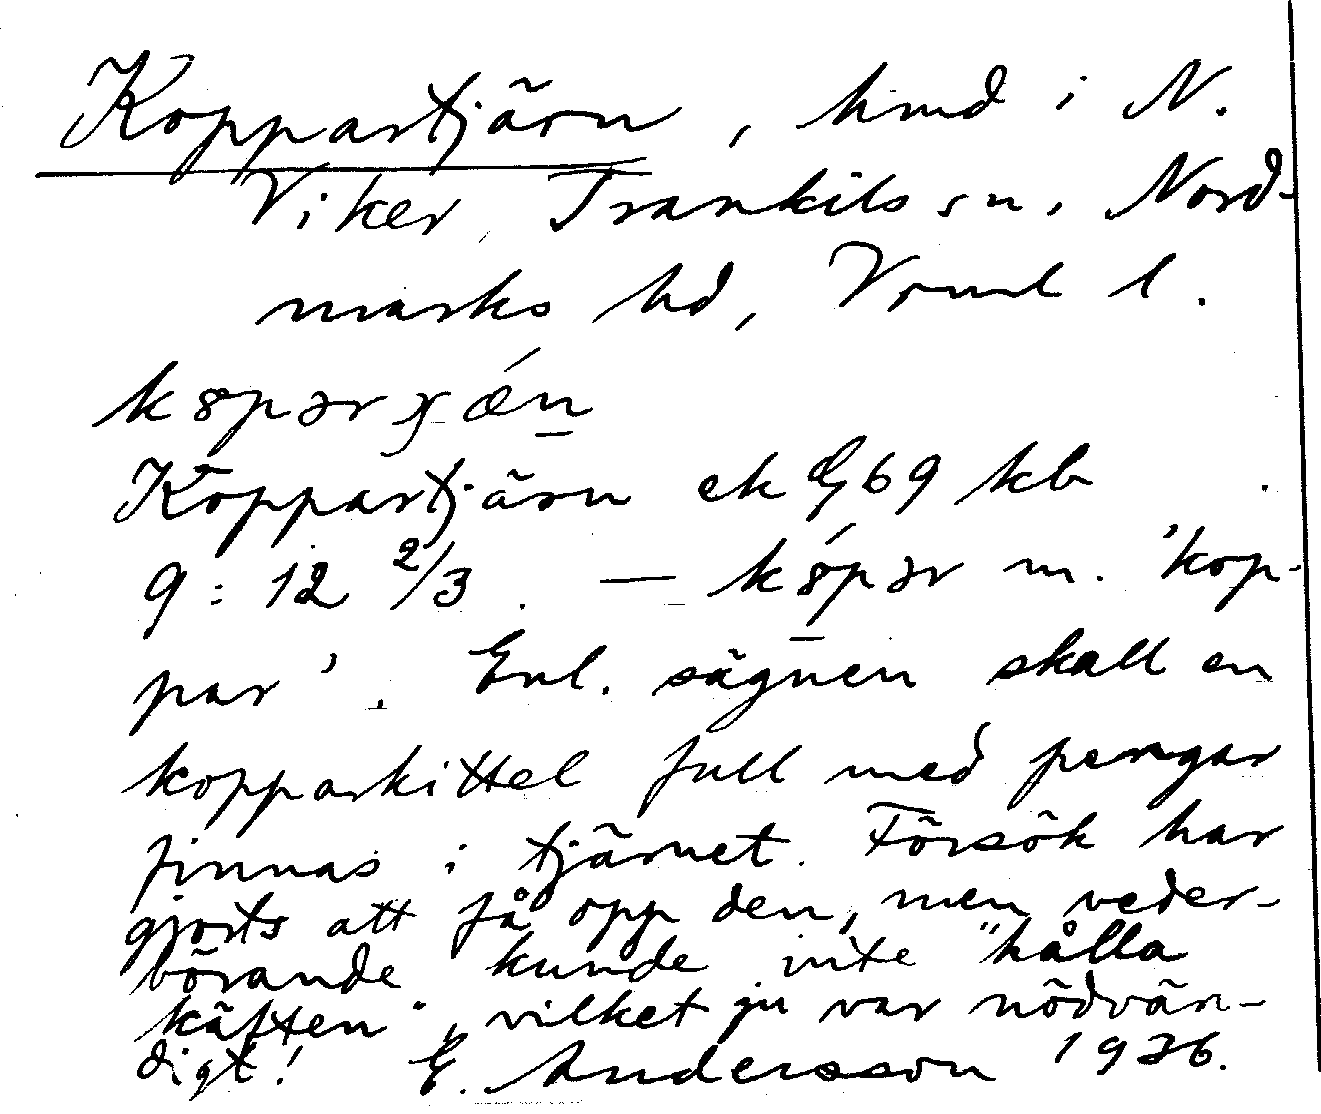 Koppartjärn, hmd i N.
Viker, Trankils sn, Nord-
marks hd, Vrml l.
Koppartjärn ek G69 kb
9:12 2/3. — m. 'kop-
par'. Enl. sägnen skall en
kopparkittel full med pengar
finnas i tjärnet. Försök har
gjorts att få opp den, men veder-
börande kunde inte "hålla
käften", vilket ju var nödvän-
digt! E. Andersson 1936.